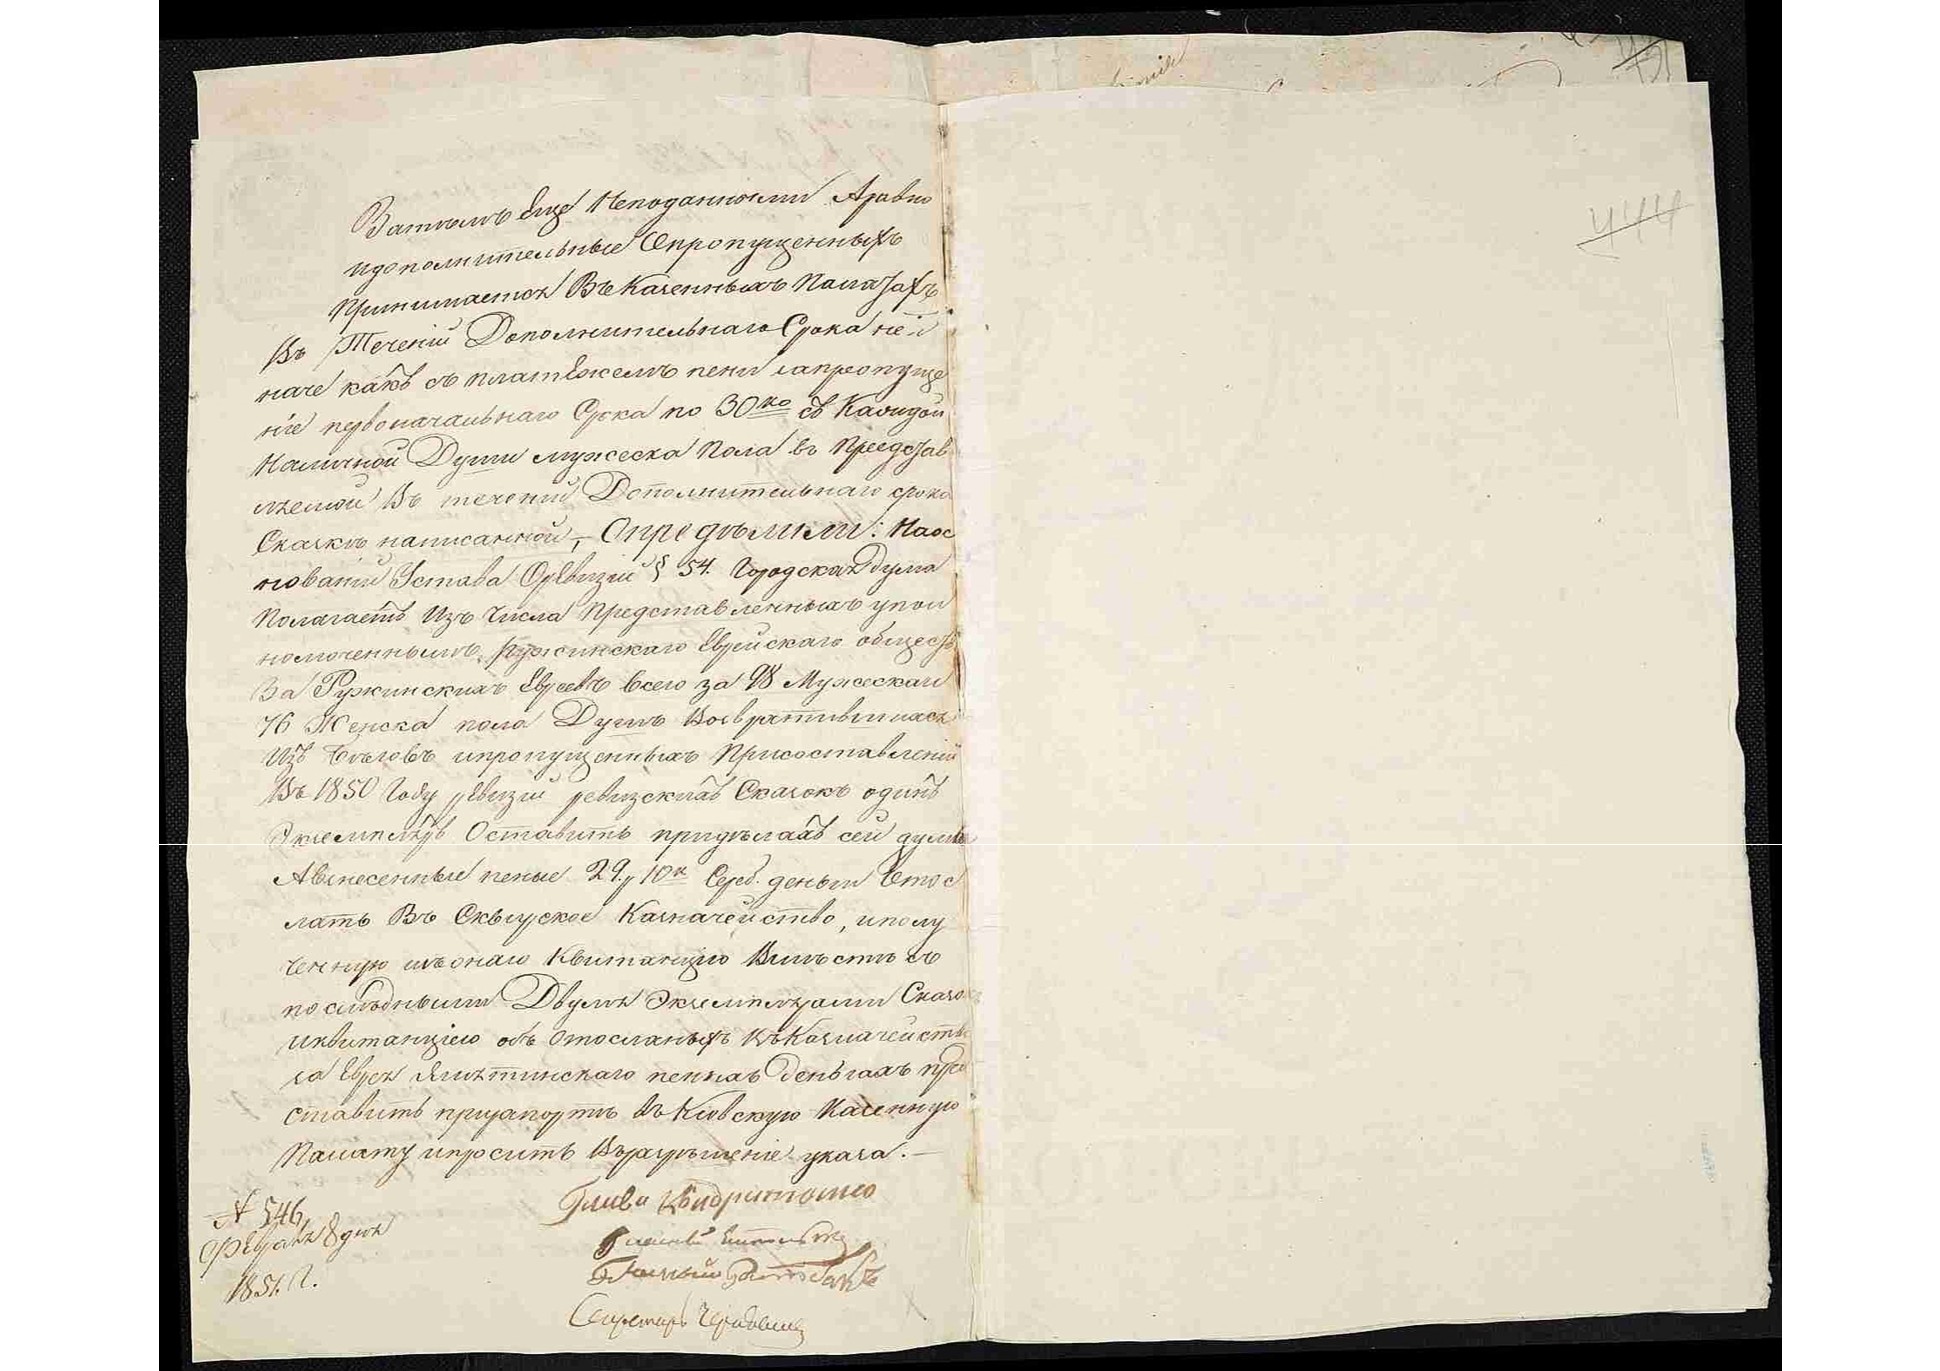 Затемъ Еще Неподанными Аравно
идополнительные Опропущенныхъ
Принимается Въ Казенныхъ Палатахъ
Въ Теченіи Дополнительнаго Срока неи
наче какъ съ платежемъ пени запропуще
ніе первоначальнаго Срока по 30 ко съ Каждой
Наличной Души мужеска Пола въ Представ
ляемой Въ теченіи Дополнительнаго срока
Сказкѣ написанной, – Опредѣлили: Наос
нованіи Устава Оревизіи § 54. Городская Дума
Полагаетъ Изъ Числа Представленныхъ упол
номоченнымъ Ружинскаго Еврейскаго обществ
За Ружинскихъ Евреевъ всего за 98 Мужеска и
76 Женска пола Душъ Возвратившихся
Изъ Беговъ ипропущенныхъ Присоставленіи
Въ 1850 Году ревизіи ревизскихъ Сказокъ одинъ
Экземпляръ Оставить придѣлахъ сей думы
Авзнесенные пеные 29 р 10 к Сереб. деньги Отос
лать Въ Сквирское Казначейство, иполу
ченную изъонаго Квитанцію Вмѣстѣ съ
последными Двумя Экземплярами Сказокъ
иквитанціею объ Отосланыхъ Въ Казначейство
за Еврея пенныхъ Деньгахъ пред
ставить прирапортѣ въ Кіевскую Казенную
Палату ипросить Въразрѣшеніе указа. –
Глава
Гласный
Гласный
Секретарь
№ 546
Февраля 8 дня
1851. Г.
444